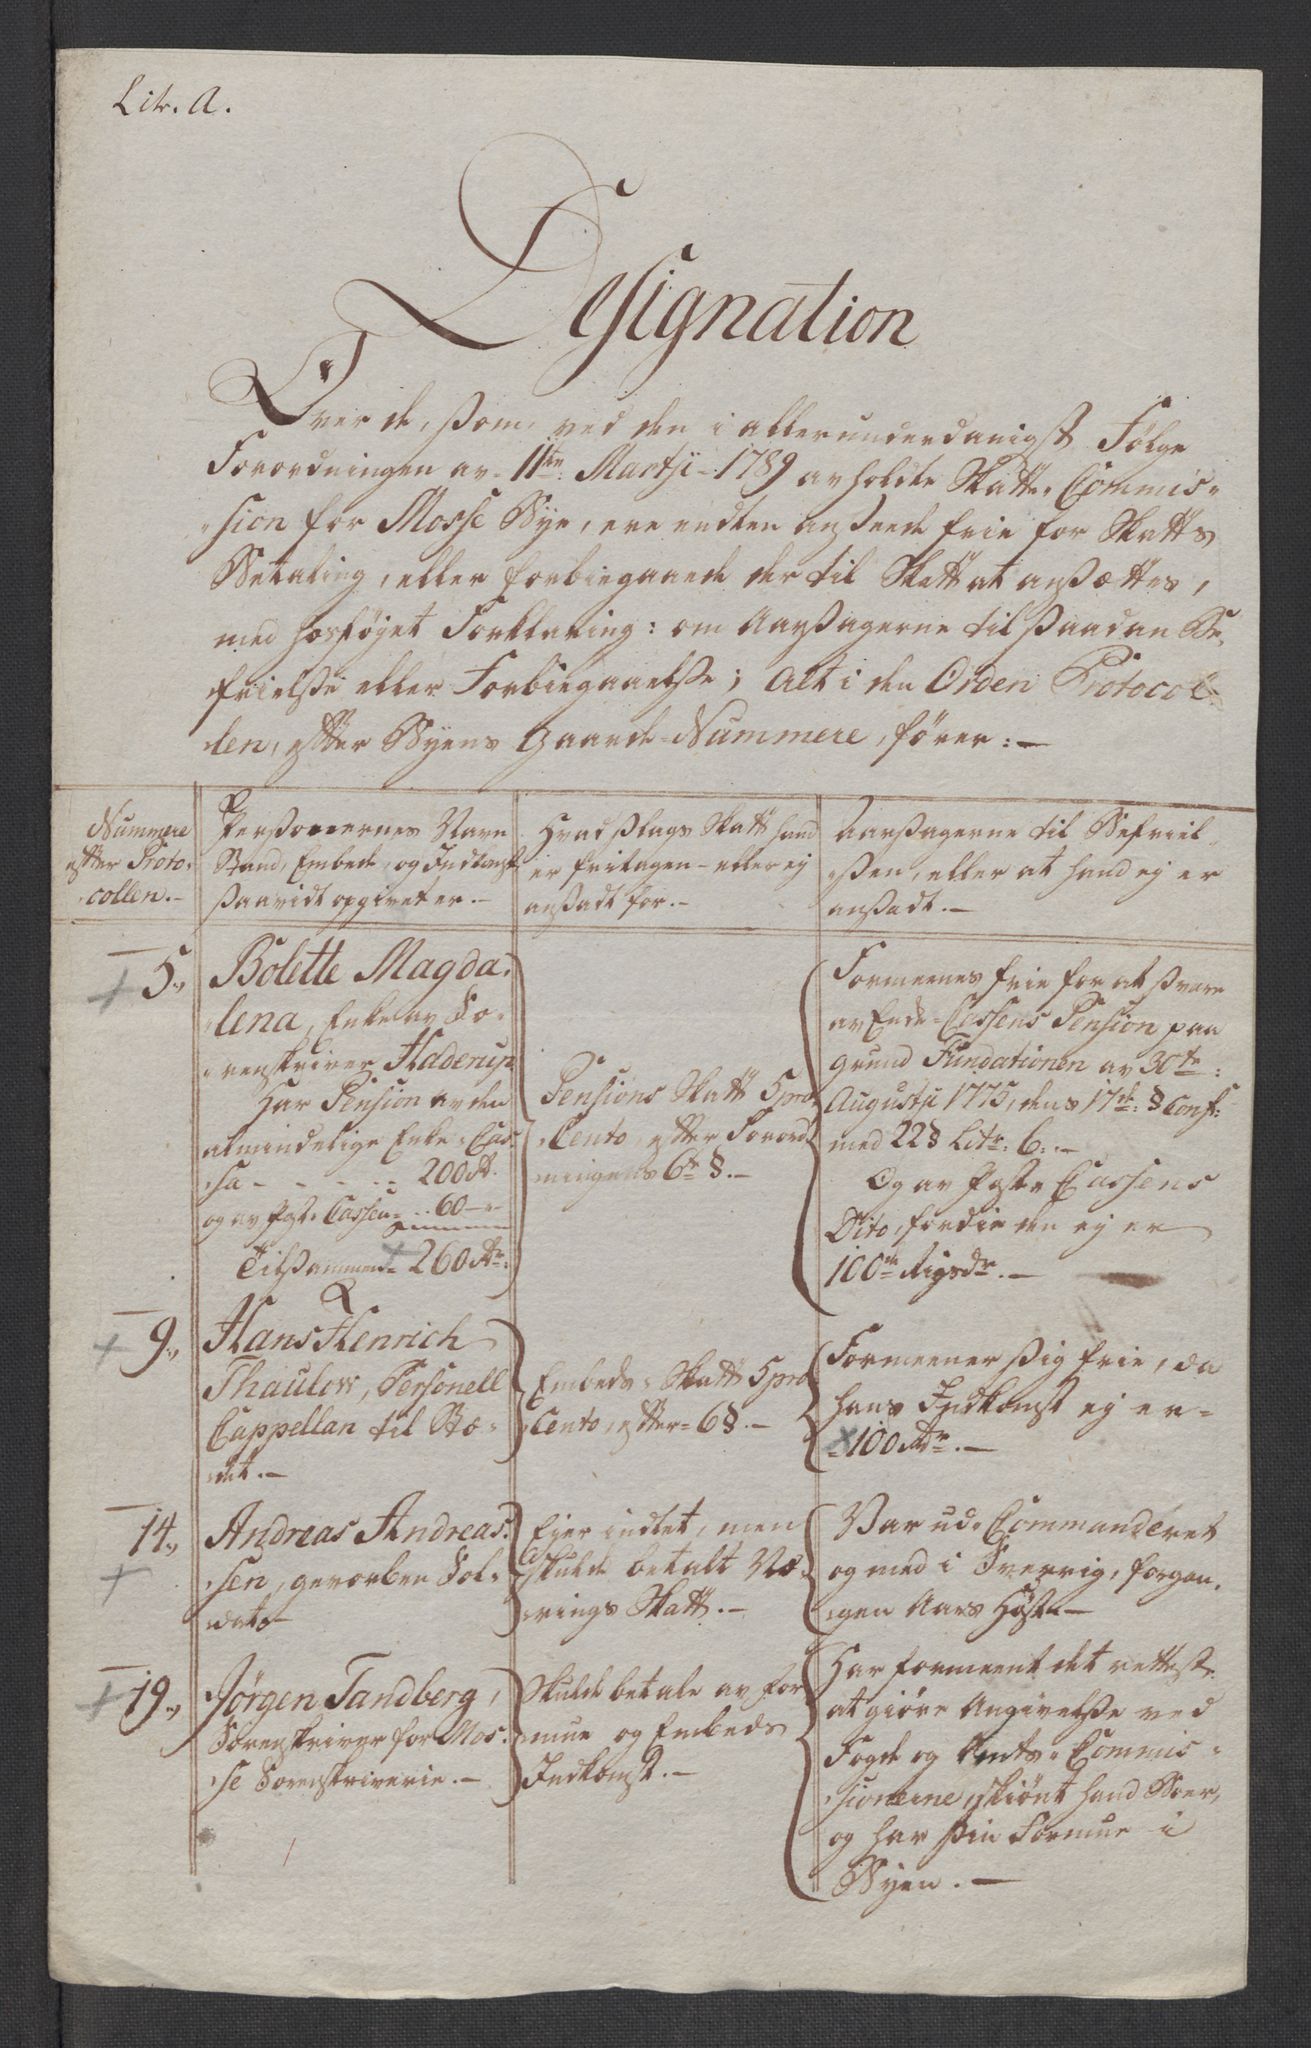 Litr. A.
Designation
Over de, som, ved den i allerunderdanigst Følge
Forordningen av 11te Martji 1789 avholdte Skatte-Commis-
sion for Mosse Bye, ere endten anseede frie for Skatts
Betaling, eller forbiegaaede der til Skatt at ansættes,
med hosføjet Forklaring: om Aarsagerne til saadan Be-
frielse eller Forbiegaaelse; Alt i den Orden Protocol-
len, efter Byens Gaards-Nummere, fører:—
Nummere
efter Proto-
collen.—
Personernes Navn
Stand, Embede, og Indkomst
saavidt opgivet er.—
Hvad slags Skatt hand
er fritagen eller ej
ansadt for.—
Aarsagerne til Befriel-
sen, eller at hand ej er
ansadt.—
5.
Bolette Magda-
lena, Enke av So-
renskriver Haderup
Har Pension av den
almindelige Enke-Cas-
sa - - - - 200 Rd.
og av Post-Cassen - 60 -
Tilsammen 260 Rdr.
Pensions Skatt 5 pro
Cento, efter Forord-
ningens 6te §.—
Formeenes frie for at svare
av Enke-Cassens Pension paa
Grund Fundationen av 30te
Augustji 1775, dens 17de § Conf:
med 22 § Litr: 6.—
Og av Post-Cassens
Dito, fordie den ej er
100de Rigsdr.—
9.
Hans Henrich
Thaulow, Personell
Cappellan til Stæ-
det.—
Embeds-Skatt 5 pro
Cento, efter 6 §.—
Formeener sig frie, da
hans Indkomst ej er
100 Rdr.—
14.
Andreas Andreas-
sen, gevorben Sol-
dat
Ejer indtet, men
skulde betalt Næ-
rings Skatt.—
Var ud-Commanderet
og med i Sverrig, forgan-
gen Aars Høst.—
19.
Jørgen Tandberg,
Sorenskriver for Mos-
se Sorenskriverie.—
Skulde betale av For-
mue og Embeds
Indkomst.—
Har formeent det rettest
at giøre Angivelse ved
Fogde og Amts-Commis-
sionerne, skiønt hand Boer,
og har sin Formue i
Byen.—